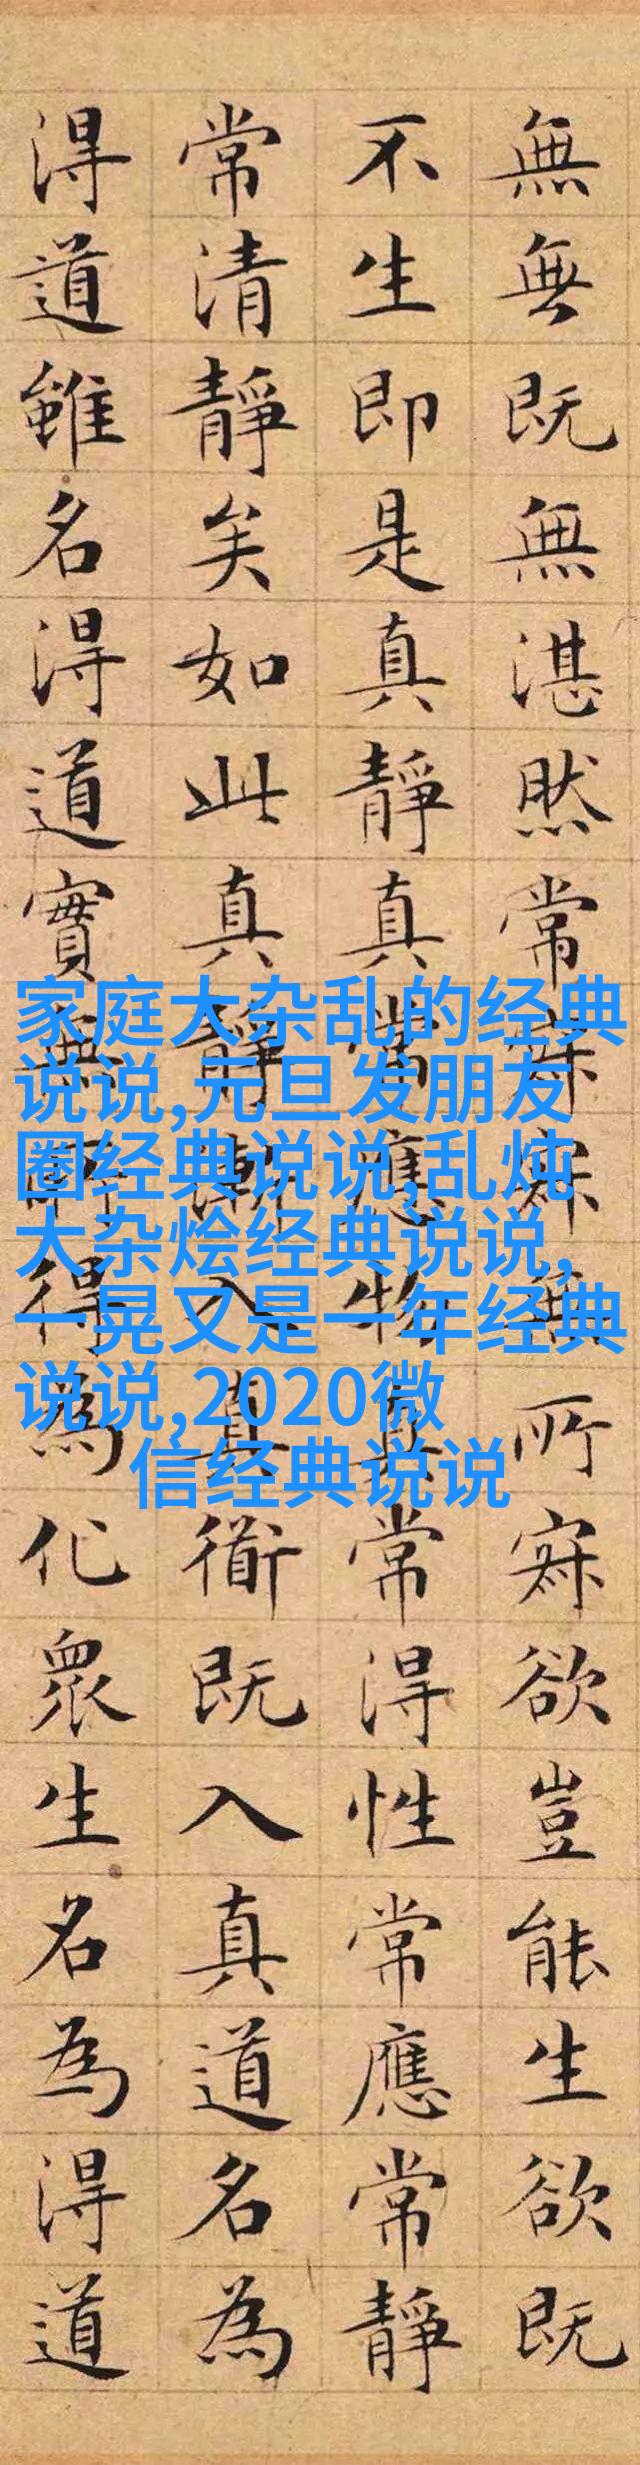 無無既無湛然常寂寂無所寂欲豈能生欲既
不生即是真靜真常應物真常得性常應常靜
常清靜矣如此真靜漸入真衜既入真道名為
得道雖名得道實無所得為化衆生名為得道
家庭大杂乱的经典
说说,元旦发朋友
圈经典说说,乱炖
大杂烩经典说说,
一晃又是一年经典
说说,2020微
信经典说说